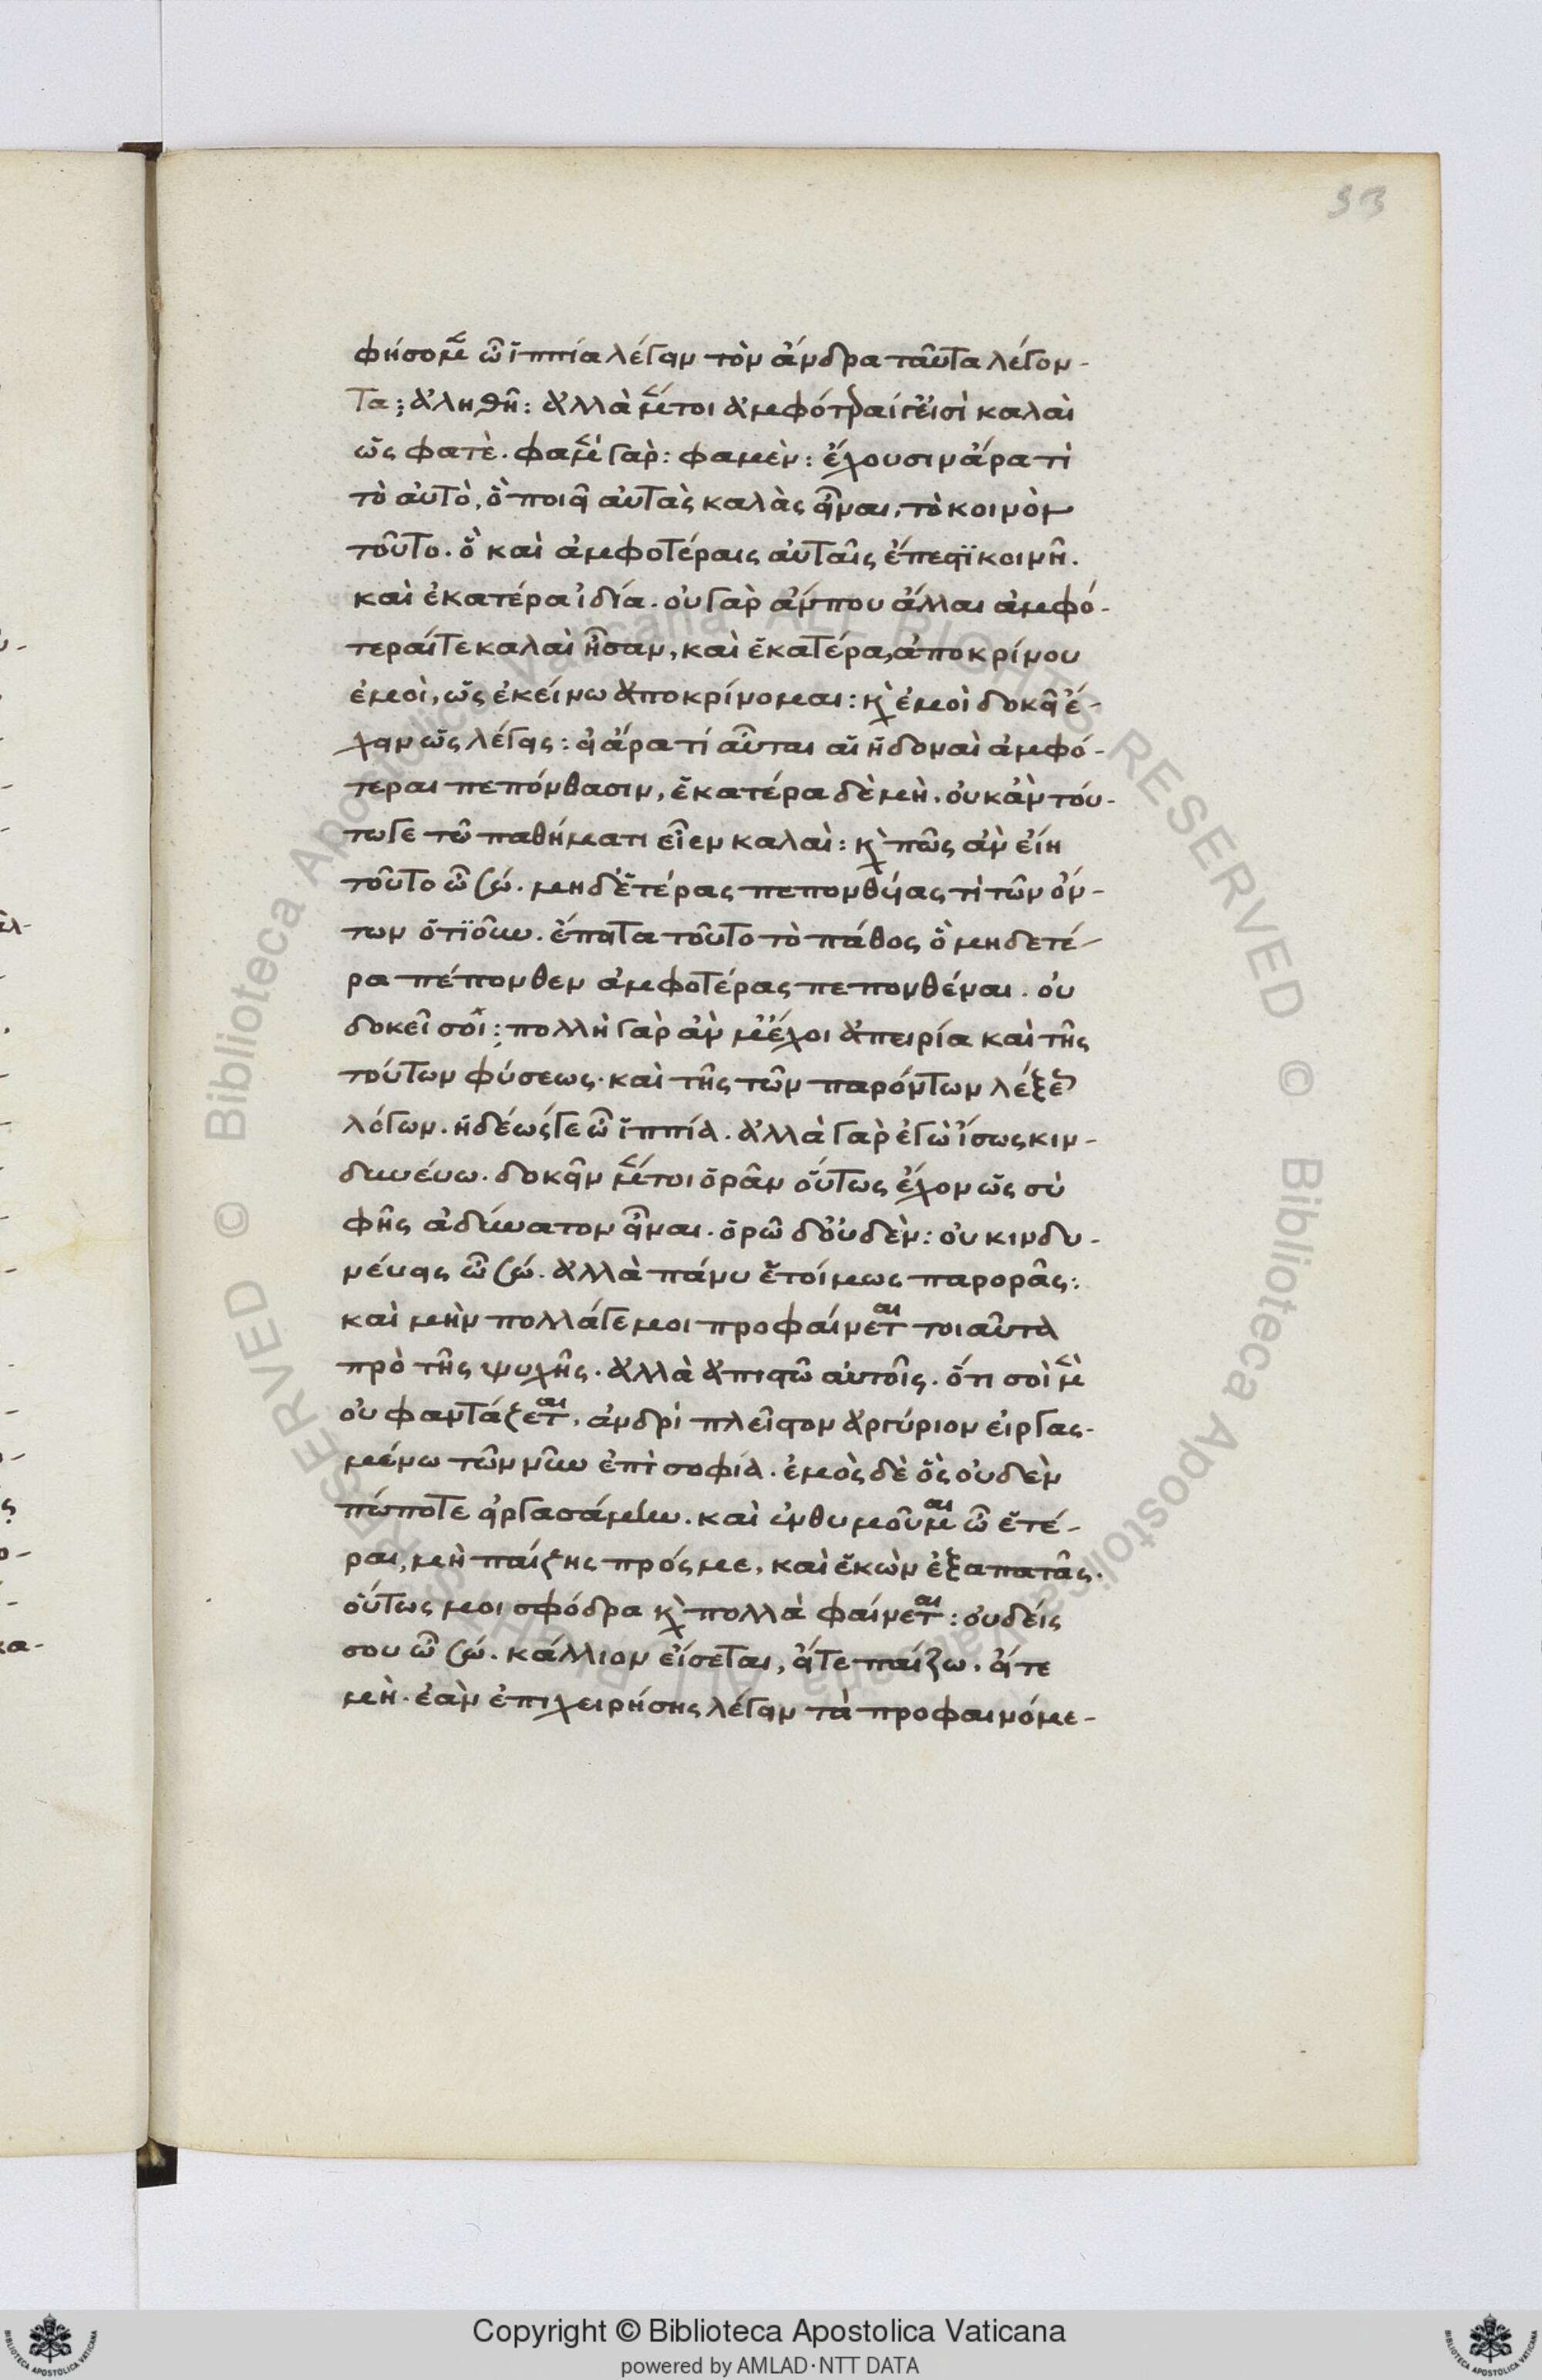 33
φήσομεν ὦ ἱππία λέγειν τὸν ἄνδρα ταῦτα λέγον-
τα; ἀληθῆ: ἀλλὰ μέντοι ἀμφότεραί γ' εἰσὶ καλαὶ
ὥς φατὲ. φαμέν γὰρ: φαμὲν: ἔχουσιν ἄρα τὶ
τὸ αὐτὸ, ὃ ποιεῖ αὐτὰς καλὰς εἶναι, τὸ κοινὸν
τοῦτο. ὃ καὶ ἀμφοτέραις αὐταῖς ἔπεστϊ κοινῆ.
καὶ ἑκατέρα ἰδία. οὐ γὰρ ἄν που ἄλλαι ἀμφό-
τεραί τε καλαὶ ἦσαν, καὶ ἑκατέρα, ἀποκρίνου
ἐμοὶ, ὡς ἐκείνω ἀποκρίνομαι: κὰ ἐμοὶ δοκεῖ ἔ-
χειν ὡς λέγεις: εἰ ἄρα τί αὗται αἱ ἡδοναὶ ἀμφό-
τεραι πεπόνθασιν, ἑκατέρα δὲ μὴ, οὐκ ἂν τού-
τω γε τῶ παθήματι εἶεν καλαὶ: κὰ πῶς ἂν εἴη
τοῦτο ὦ σώ. μηδ' ἑτέρας πεπονθύιας τὶ τῶν ὄν-
των ὁτϊοῦν. ἔπειτα τοῦτο τὸ πάθος ὃ μηδετέ-
ρα πέπονθεν ἀμφοτέρας πεπονθέναι. οὐ
δοκεῖ σοῖ; πολλὴ γὰρ ἄν μ' ἔχοι ἀπειρία καὶ τῆς
τούτων φύσεως. καὶ τῆς τῶν παρόντων λέξεως
λόγων. ἡδέως γε ὦ ἱππία. ἀλλὰ γὰρ ἐγὼ ἴσως κιν-
δυνεύω. δοκεῖν μέντοι ὁρᾶν οὕτως ἔχον ὡς σὺ
φῆς ἀδύνατον εἶναι. ὁρῶ δ' οὐδὲν: οὐ κινδυ-
νεύεις ὦ σώ. ἀλλὰ πάνυ ἑτοίμως παρορᾶς:
καὶ μὴν πολλά γε μοι προφαίνεται τοιαῦτα
πρὸ τῆς ψυχῆς. ἀλλὰ ἀπιστῶ αὐτοῖς. ὅτι σοὶ μὲν
οὐ φαντάζεται, ἀνδρὶ πλεῖστον ἀργύριον εἰργας-
μένω τῶν νῦν ἐπὶ σοφία. ἐμοὶ δὲ ὃς οὐδὲν
πώποτε εἰργασάμην. καὶ ἐνθυμοῦμαι ὦ ἑτέ-
ραι, μὴ παίζης πρός με, καὶ ἑκὼν ἐξαπατᾶς.
οὕτως μοι σφόδρα κὰ πολλὰ φαίνεται: οὐδείς
σου ὦ σώ. κάλλιον εἴσεται, εἴτε παίζω, εἴτε
μὴ. ἐὰν ἐπιχειρήσης λέγειν τὰ προφαινόμε-
Copyright © Biblioteca Apostolica Vaticana
powered by AMLAD·NTT DATA